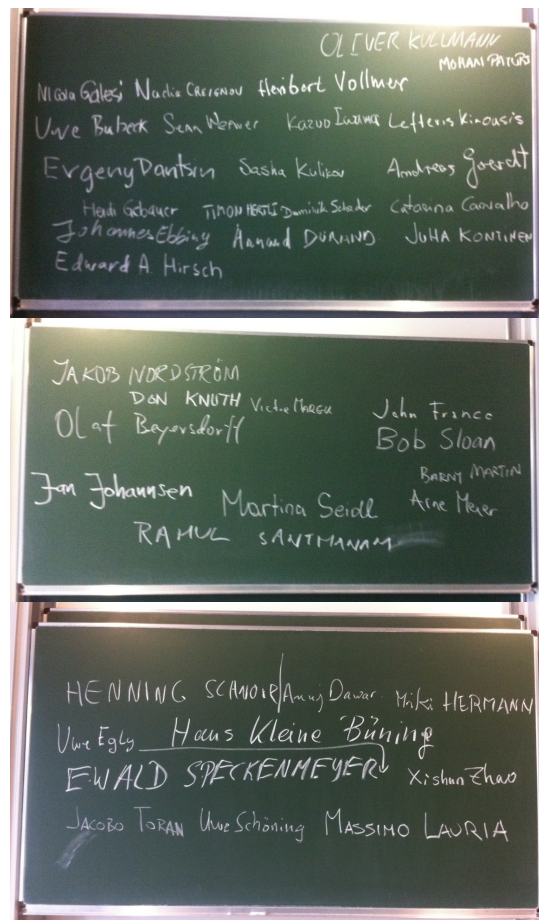 OLIVER KULLMANN
MOHAN PATURI
Nicola Galesi Nadia CREIGNOU Heribert Vollmer
Uwe Bubeck Sean Weaver Kazuo Iwama Lefteris Kirousis
Evgeny Dantsin Sasha Kulikov Andreas Goerdt
Heidi Gebauer TIMON HERTLI Dominik Scheder Catarina Carvalho
Johannes Ebbing Arnaud DURAND JUHA KONTINEN
Edward A. Hirsch
JAKOB NORDSTRÖM
DON KNUTH Victor MAREK John Franco
Olaf Beyersdorff Bob Sloan
BARNY MARTIN
Jan Johannsen Martina Seidl Arne Meier
RAHUL SANTHANAM
HENNING SCHNOOR Anuj Dawar Miki HERMANN
Uwe Egly Hans Kleine Büning
EWALD SPECKENMEYER Xishun Zhao
JACOBO TORAN Uwe Schöning MASSIMO LAURIA